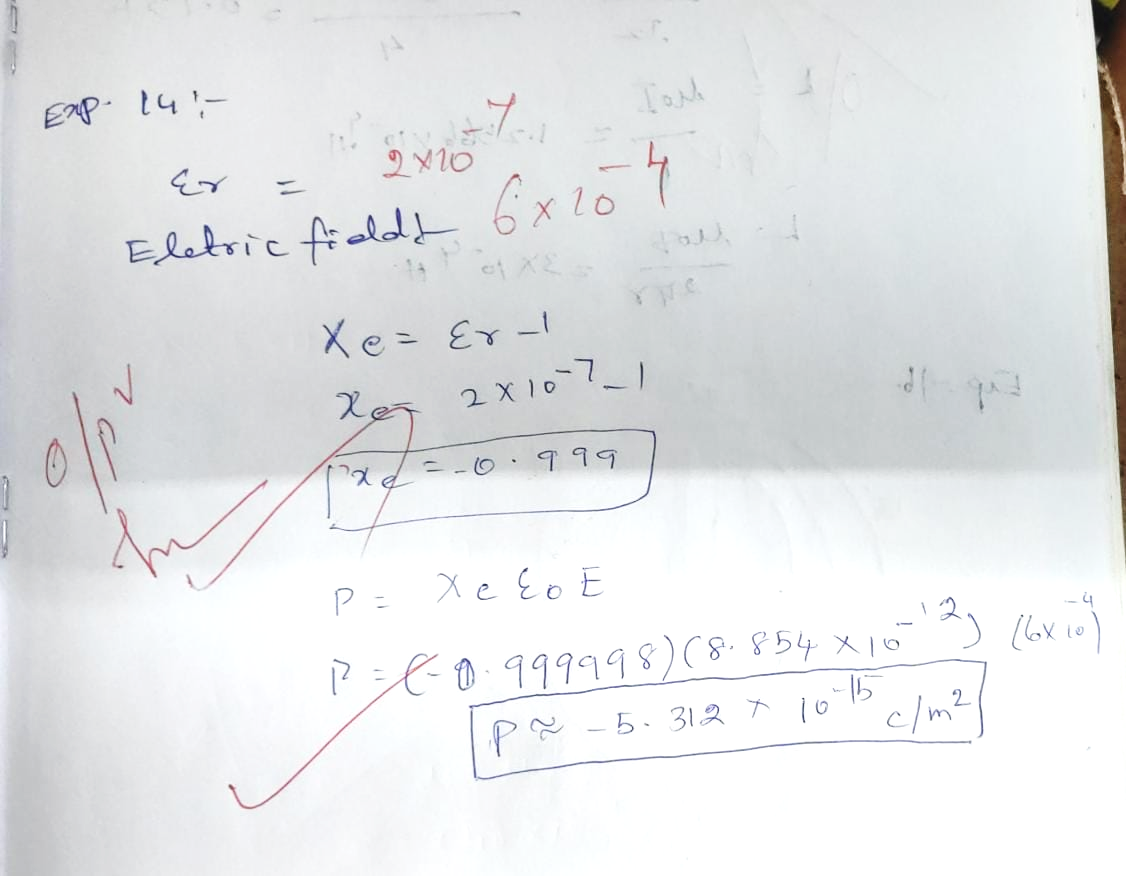 Exp. 14 :-
εr = 2×10⁻⁷
Eletric field 6×10⁻⁴
Xe = εr -1
Xe = 2×10⁻⁷-1
O/P ✓
xe = -0.999
P = Xe ε0 E
P = (-0.999998)(8.854 ×10⁻¹²) (6×10⁻⁴)
P ≈ -5.312 × 10⁻¹⁵ c/m²